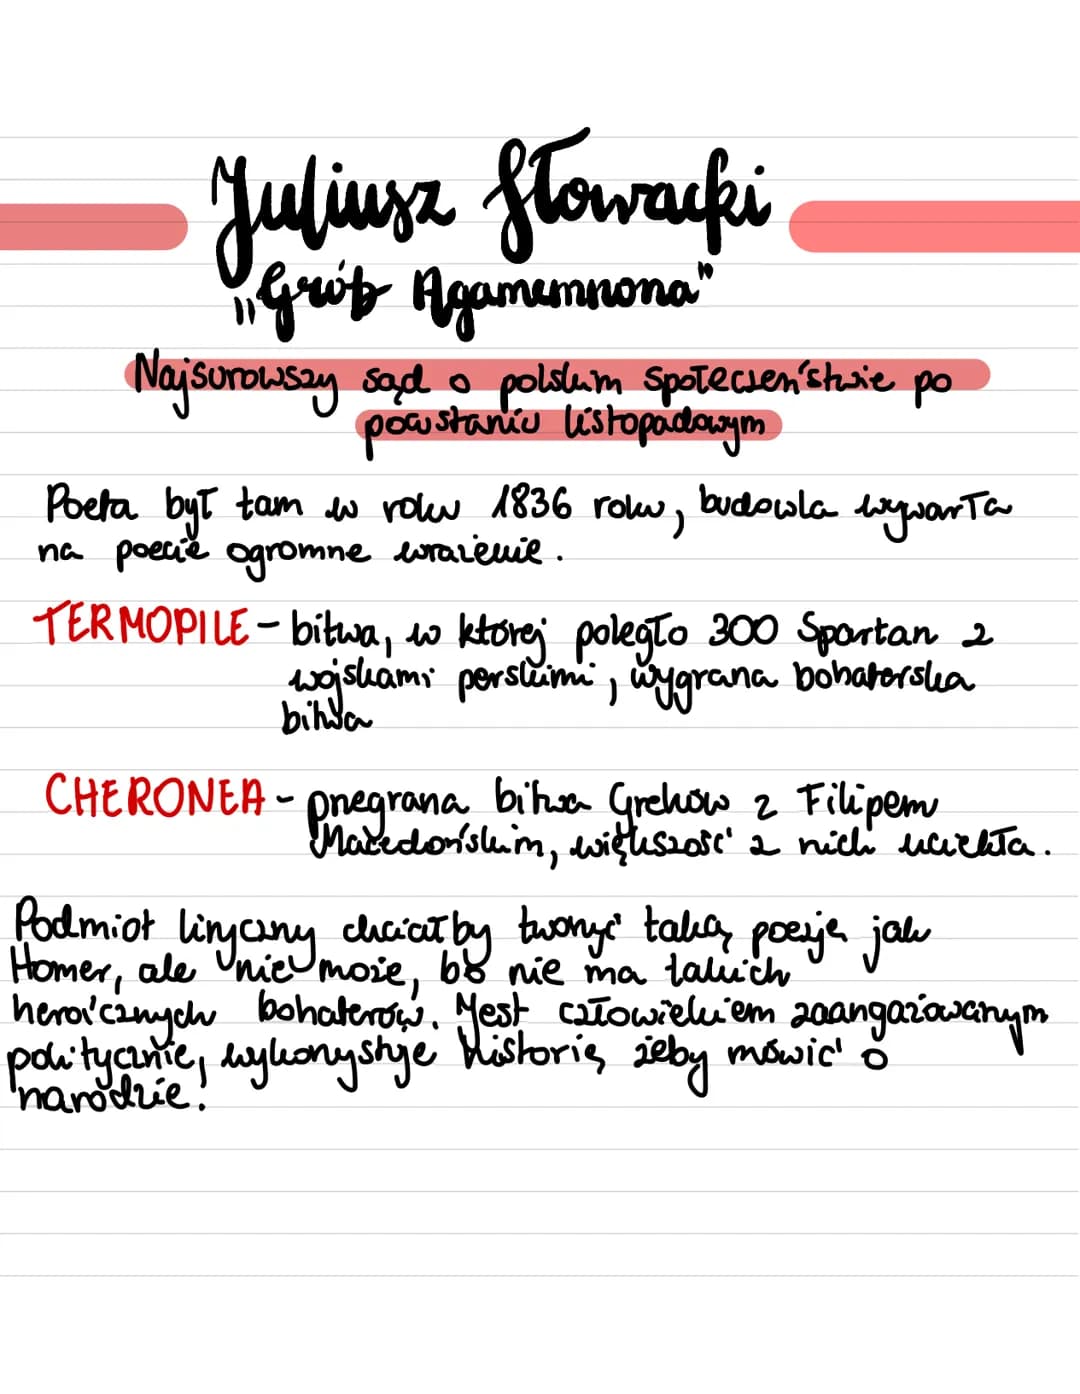 Juliusz Słowacki
„Grób Agamemnona"
Najsurowszy sąd o polskim społeczeństwie po
powstaniu listopadowym
Poeta był tam w roku 1836 roku, budowla wywarła
na poecie ogromne wrażenie.
TERMOPILE - bitwa, w której poległo 300 Spartan z
wojskami perskimi, wygrana bohaterska
bitwa
CHERONEA - przegrana bitwa Greków z Filipem
Macedońskim, większość z nich uciekła.
Podmiot liryczny chciałby tworzyć taką poezję jak
Homer, ale nie może, bo nie ma takich
heroicznych bohaterów. Jest człowiekiem zaangażowanym
politycznie, wykorzystuje historię żeby mówić o
narodzie.